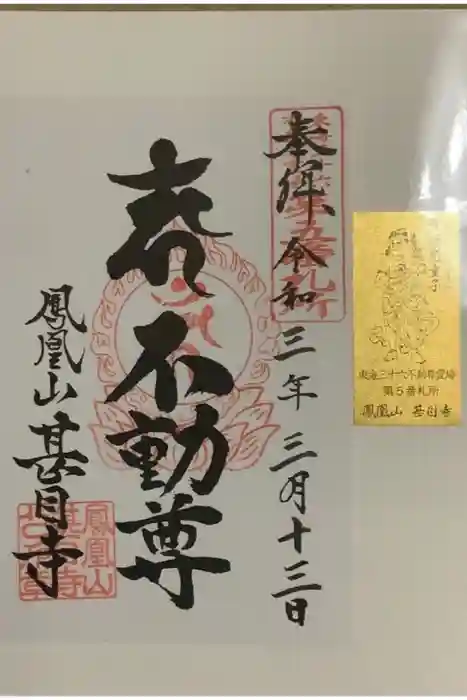 奉拝 令和三年三月十三日
不動尊
鳳凰山 甚目寺
第五番札所
鳳凰山
甚目寺
童子
東海三十六不動尊霊場
第5番札所
鳳凰山 甚目寺